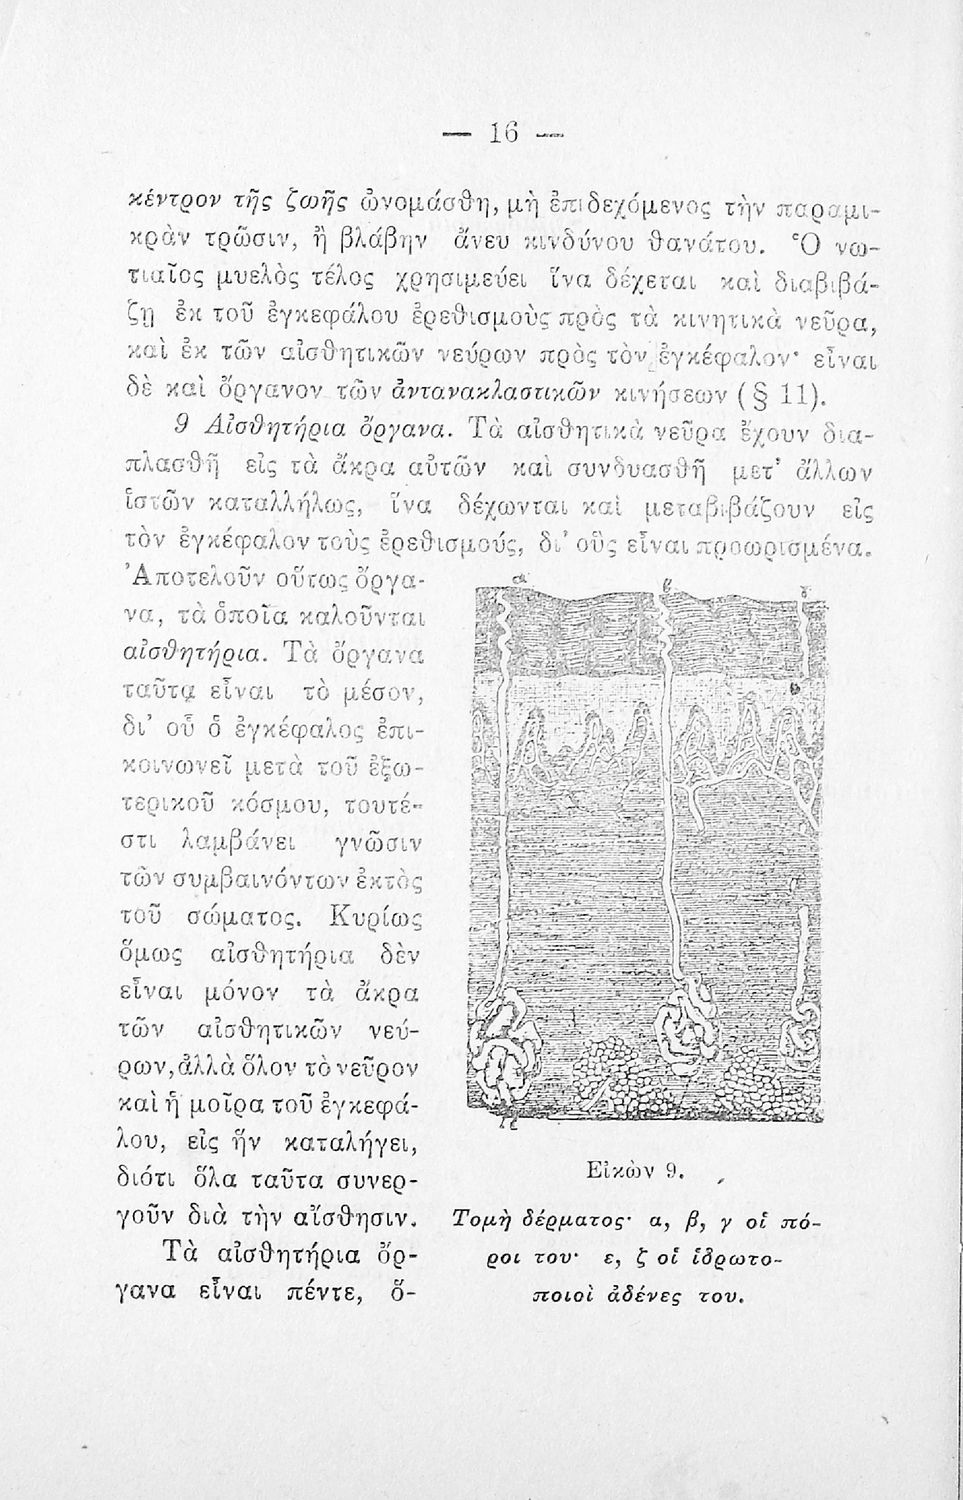 — 16 —
κέντρον τῆς ζωῆς ὠνομάσθη, μὴ ἐπιδεχόμενος τὴν παραμι-
κρὰν τρῶσιν, ἢ βλάβην ἄνευ κινδύνου θανάτου. Ὁ νω-
τιαῖος μυελὸς τέλος χρησιμεύει ἵνα δέχεται καὶ διαβιβά-
ζῃ ἐκ τοῦ ἐγκεφάλου ἐρεθισμοὺς πρὸς τὰ κινητικὰ νεῦρα,
καὶ ἐκ τῶν αἰσθητικῶν νεύρων πρὸς τὸν ἐγκέφαλον· εἶναι
δὲ καὶ ὄργανον τῶν ἀντανακλαστικῶν κινήσεων (§ 11).
9 Αἰσθητήρια ὄργανα. Τὰ αἰσθητικὰ νεῦρα ἔχουν δια-
πλασθῆ εἰς τὰ ἄκρα αὐτῶν καὶ συνδυασθῆ μετ' ἄλλων
ἱστῶν καταλλήλως, ἵνα δέχωνται καὶ μεταβιβάζουν εἰς
τὸν ἐγκέφαλον τοὺς ἐρεθισμούς, δι' οὓς εἶναι προωρισμένα.
Ἀποτελοῦν οὕτως ὄργα-
να, τὰ ὁποῖα καλοῦνται
αἰσθητήρια. Τὰ ὄργανα
ταῦτα εἶναι τὸ μέσον,
δι' οὗ ὁ ἐγκέφαλος ἐπι-
κοινωνεῖ μετὰ τοῦ ἐξω-
τερικοῦ κόσμου, τουτέ-
στι λαμβάνει γνῶσιν
τῶν συμβαινόντων ἐκτὸς
τοῦ σώματος. Κυρίως
ὅμως αἰσθητήρια δὲν
εἶναι μόνον τὰ ἄκρα
τῶν αἰσθητικῶν νεύ-
ρων, ἀλλὰ ὅλον τὸ νεῦρον
καὶ ἡ μοῖρα τοῦ ἐγκεφά-
λου, εἰς ἣν καταλήγει,
διότι ὅλα ταῦτα συνερ-
γοῦν διὰ τὴν αἴσθησιν.
Τὰ αἰσθητήρια ὄρ-
γανα εἶναι πέντε, ὅ-
α β γ
Εἰκὼν 9.
Τομὴ δέρματος· α, β, γ οἱ πό-
ροι του· ε, ζ οἱ ἱδρωτο-
ποιοὶ ἀδένες του.